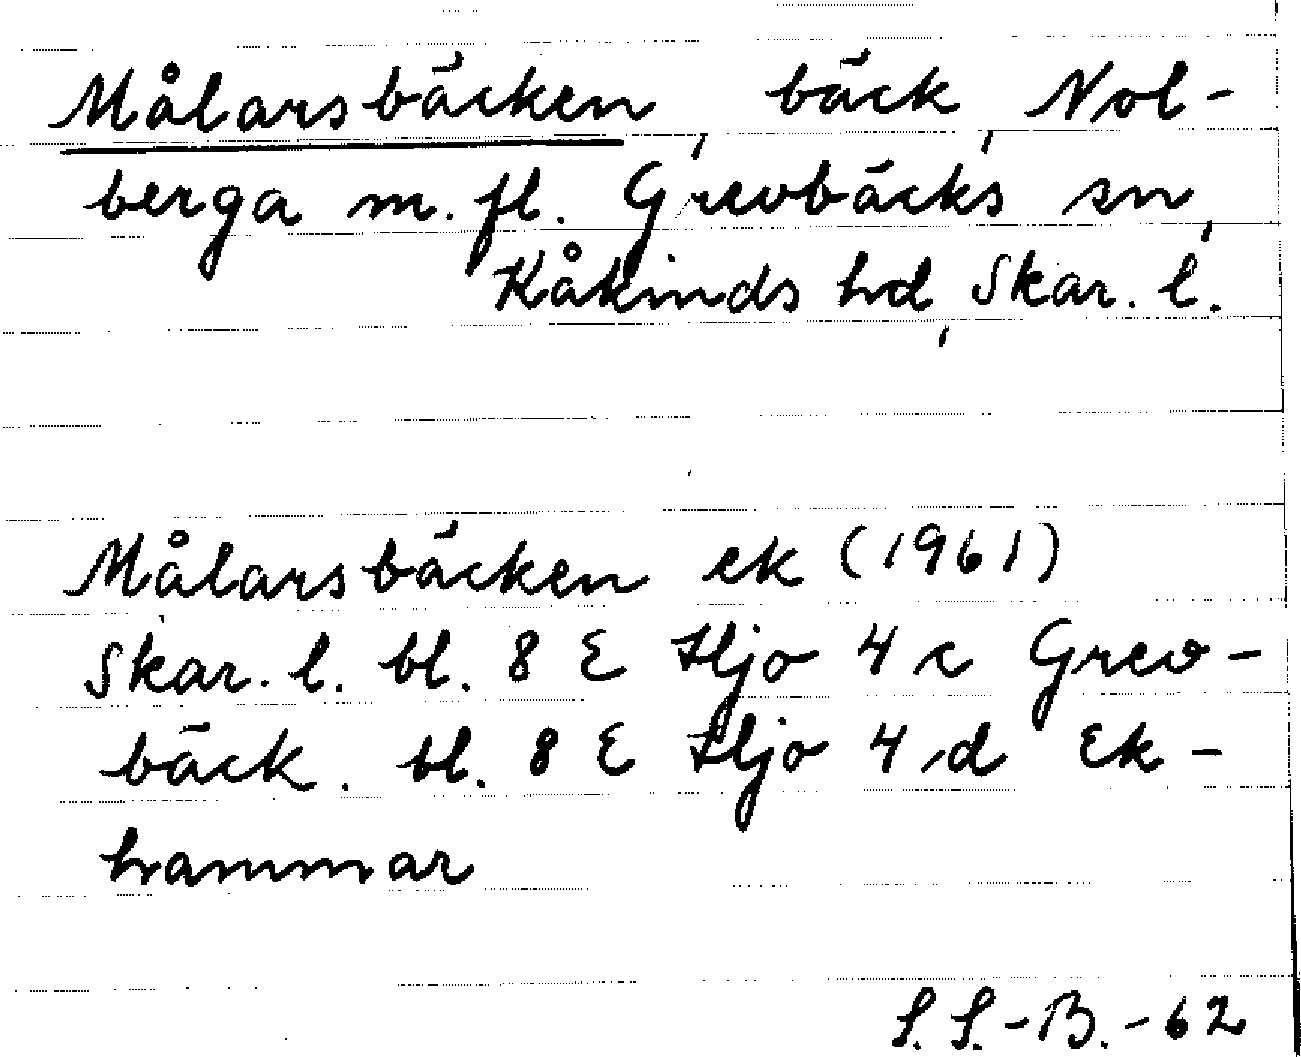 Målarsbäcken, bäck, Nol-
berga m. fl. Grevbäcks sn,
Kåkinds hd, Skar. l.
Målarsbäcken ek (1961)
Skar. l. bl. 8 E Hjo 4 c Grev-
bäck. bl. 8 E Hjo 4 d Ek-
hammar
S. S.-B. -62